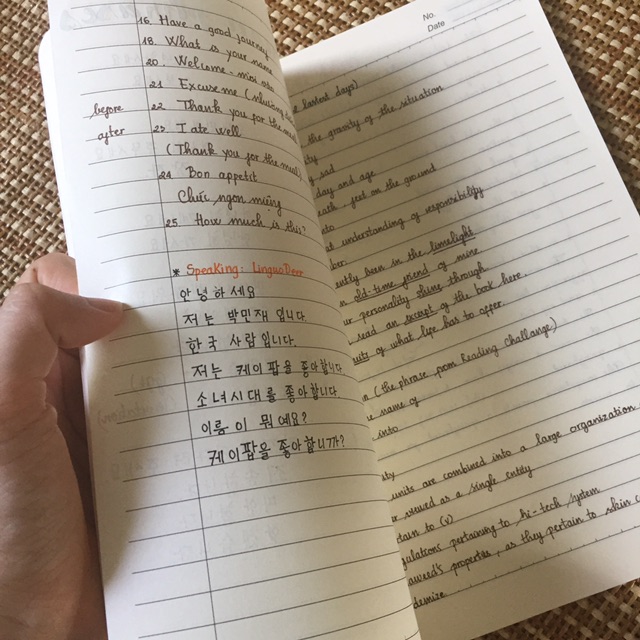 16. Have a good journey
18. What is your name
20. Welcome -
21 Excuse me
before 22. Thank you for the
after 23. I ate well
(Thank you for the meal)
24 Bon appetit
Chúc ngon miệng
25. How much is this?
* Speaking: LinguoDeer
안녕하세요
저는 박민재 입니다
한국 사람입니다.
저는 케이팝을 좋아합니다
소녀시대를 좋아합니다
이름이 뭐예요?
케이팝을 좋아합니까?
No.
Date
days)
the gravity of the situation
day and age
feet on the ground
understanding of responsibility
been in the limelight
old-time friend of mine
personality shine through
read an except of the book here
of what life has to offer
(the phrase from Reading challange)
name of
into
units are combined into a large organization
viewed as a single entity
to (v)
pertaining to hi-tech system
properties, as they pertain to skin